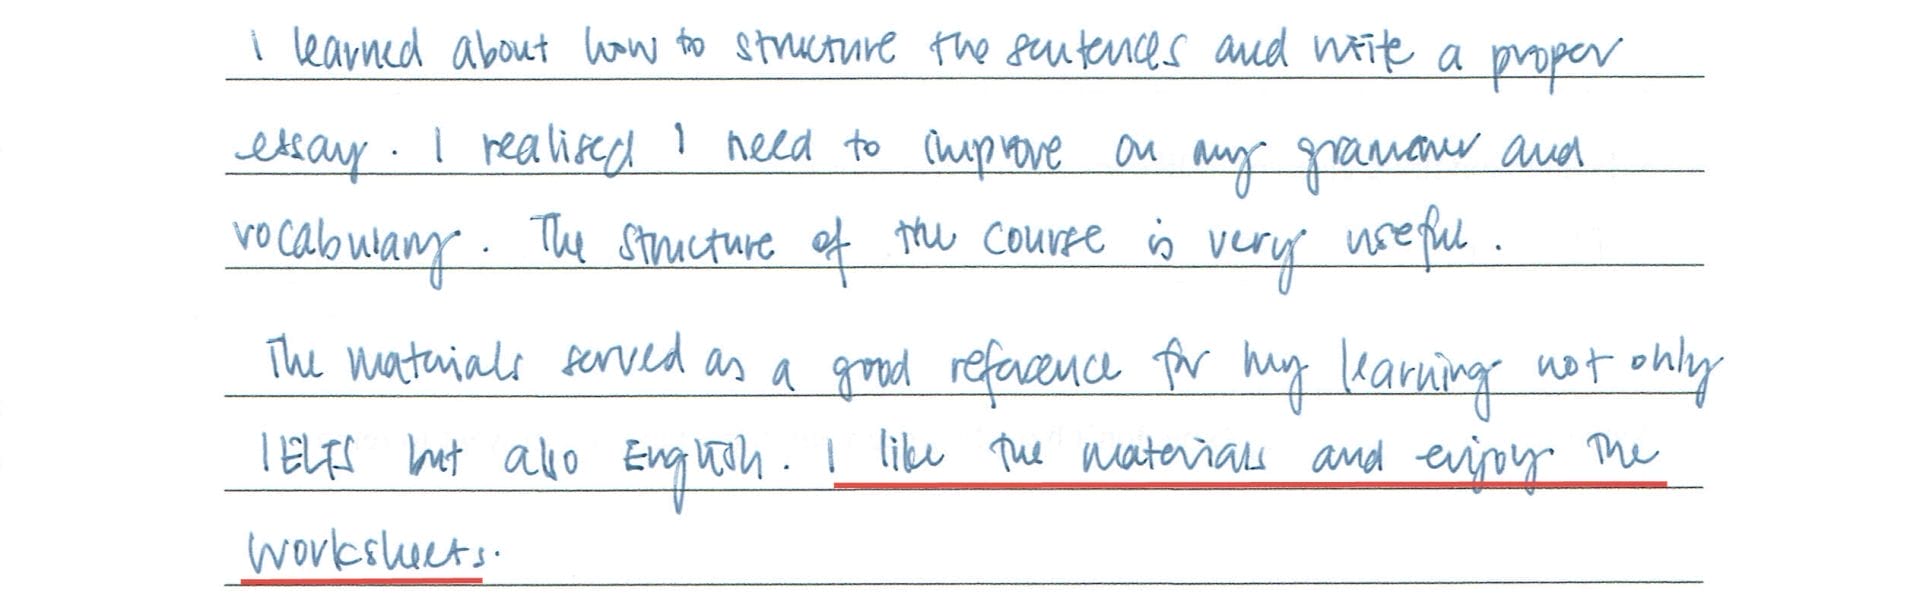 I learned about how to structure the sentences and write a proper
essay. I realised I need to improve on my grammar and
vocabulary. The structure of the course is very useful.
The materials served as a good reference for my learning not only
IELTS but also English. I like the materials and enjoy the
worksheets.